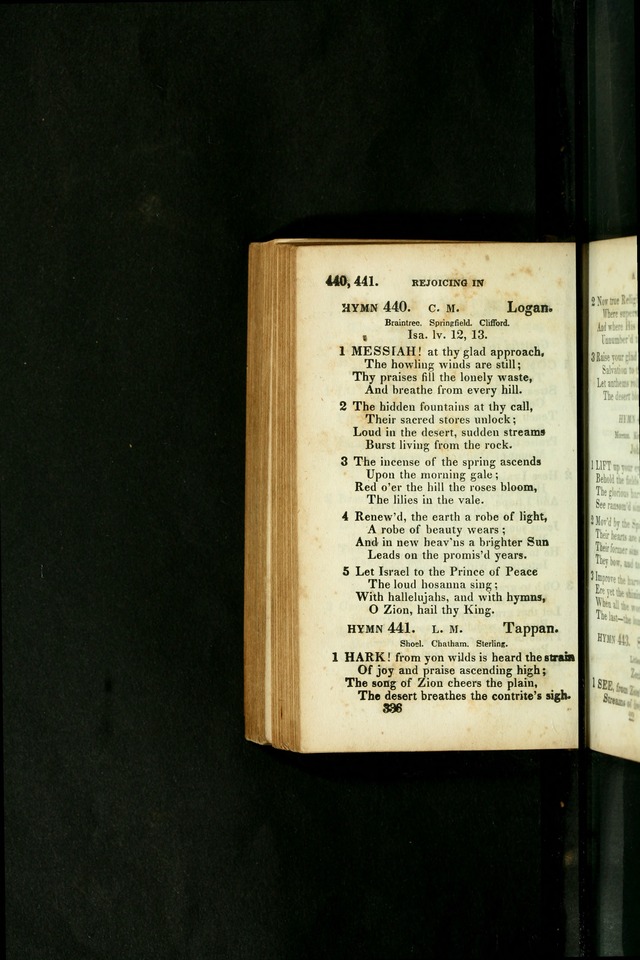 440, 441. REJOICING IN
HYMN 440. C. M. Logan.
Braintree. Springfield. Clifford.
Isa. lv. 12, 13.
1 MESSIAH! at thy glad approach,
The howling winds are still;
Thy praises fill the lonely waste,
And breathe from every hill.
2 The hidden fountains at thy call,
Their sacred stores unlock;
Loud in the desert, sudden streams
Burst living from the rock.
3 The incense of the spring ascends
Upon the morning gale;
Red o'er the hill the roses bloom,
The lilies in the vale.
4 Renew'd, the earth a robe of light,
A robe of beauty wears;
And in new heav'ns a brighter Sun
Leads on the promis'd years.
5 Let Israel to the Prince of Peace
The loud hosanna sing;
With hallelujahs, and with hymns,
O Zion, hail thy King.
HYMN 441. L. M. Tappan.
Shoel. Chatham. Sterling.
1 HARK! from yon wilds is heard the strain
Of joy and praise ascending high;
The song of Zion cheers the plain,
The desert breathes the contrite's sigh.
336
2 Now true
Where
And where
3 Raise your glad
Salvation to
Let anthems
The desert
HYMN
1 LIFT up your
Behold the fields
The glorious
See
2 Mov'd by the
Their hearts
Their former
They bow, and
3 Improve the
Ere yet the
When all the
The last—the
HYMN 443.
1 SEE, from
Streams of